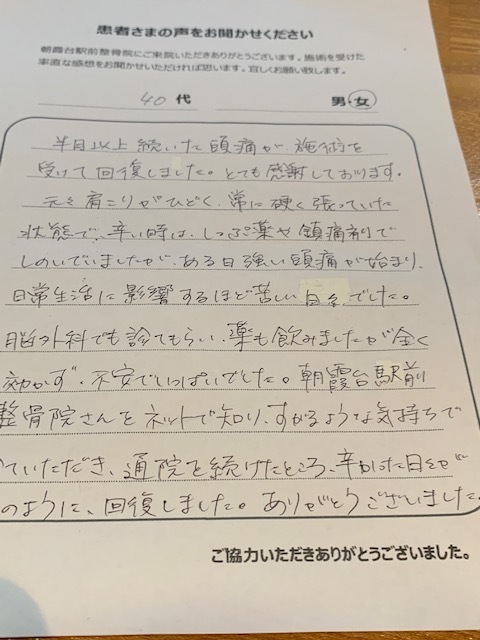 患者さまの声をお聞かせください
朝霞台駅前整骨院にご来院いただきありがとうございます。施術を受けた
率直な感想をお聞かせいただければ思います。宜しくお願い致します。
40代 男・女
半月以上続いた頭痛が、施術を
受けて回復しました。とても感謝しております。
元々肩こりがひどく、常に硬く張っていた
状態で、辛い時は、しっぷ薬や鎮痛剤で
しのいでいましたが、ある日強い頭痛が始まり、
日常生活に影響するほど苦しい日々でした。
脳外科でも診てもらい、薬も飲みましたが全く
効かず、不安でいっぱいでした。朝霞台駅前
整骨院さんをネットで知り、すがるような気持ちで
ていただき、通院を続けたところ、辛かった日々が
のように、回復しました。ありがとうございました。
ご協力いただきありがとうございました。